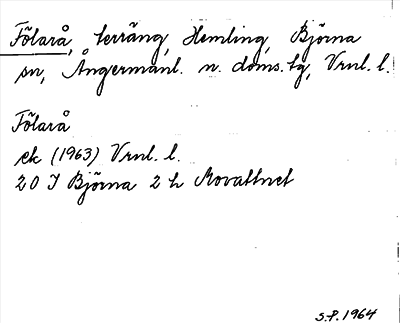 Fölarå, terräng, Hemling, Björna
sn, Ångermanl. n. doms. tg, Vrnl. l.
Fölarå
ek (1963) Vrnl. l.
20 I Björna 2 h Movattnet
S.P. 1964